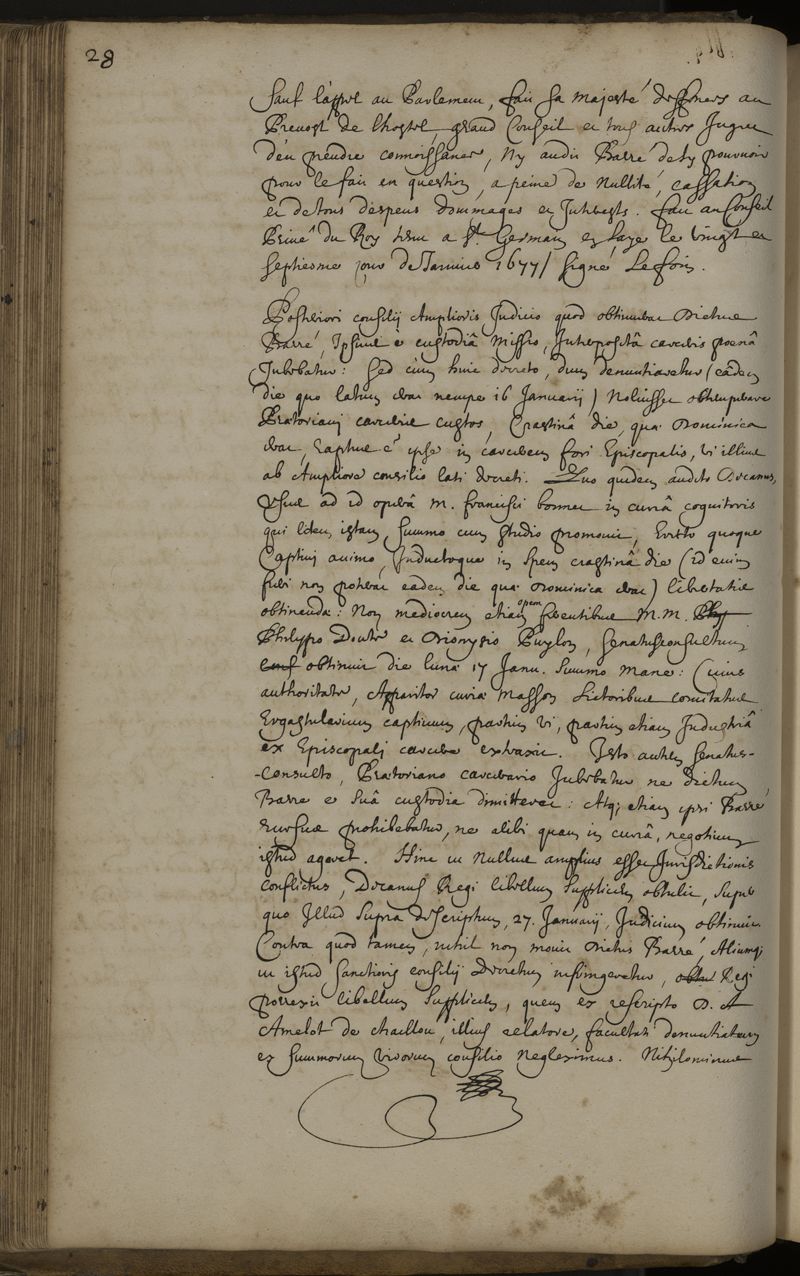 28
Sauf l'appel au Parlement, fait sa Majesté deffenses au
Prevost de l'hostel, grand Conseil et tous autres Juges
d'en prendre connoissance, Ny audit Barré de s'y pourvoir
pour le fait en question, a peine de Nullité, cassation
et de tous despens dommages et Interests. fait au Conseil
Privé du Roy tenu a St. Germain en Laye le vingt et
septiesme jour de Janvier 1677 / signé Le foin.
Posteriori consilij Amplioris Judicio quod obtinuerat Dictus
Barré, Ipsius è custodiâ missio, Interpositâ carceris poenâ
Jubebatur: Sed cùm huic decreto, dum denuntiaretur (eâdem
die quo latum erat nempe 16 Januarij) Noluisset obtemperare
Prætoriani carceris custos, Crastinâ die, quæ Dominica
erat, raptus è ipse in carcerem fori Episcopalis, vi illius
ab Ampliore consilio lati decreti. Quo quidem audito Decanus,
usus ad id operâ M. francisci bonnet in curiâ cognitoris
qui litem istam summo cum studio promovit, Erecto quoque
Captivi animo, Inductoque in spem crastinâ die (id enim
fieri non poterat eadem die quæ Dominica erat) libertatis
obtinendæ: Non mediocrem etiam opem ferentibus M.M.
Philippo Doute et Dionysio Puylon, senatusconsultum
obtinuit die lunæ 17 Janu. Summo mane: Cuius
authoritate, Apparitor curiæ Masson Lictoribus comitatus
Ergastularium captivum, partim vi, partim etiam Industriâ
ex Episcopali carcere extraxit. Isto autem Senatus-
-Consulto, Prætoriano carcerario Jubebatur ne dictum
Barre e suâ custodia dimitteret: Atq; etiam ipsi Barré
rursus prohibebatur, ne alibi quam in curiâ, negotium
istud ageret. Hinc ut Nullus amplius esset Jurisdictionis
conflictus, Decanus Regi libellum supplicem obtulit, super
quo Illud supra descriptum, 27. Januarij, Judicium obtinuit.
Contra quod tamen, nihil non movit Dictus Barré, Aliumq;
ut istud sanctioris consilij decretum infringeretur, Regi
porrexit libellum supplicem, quem ex rescripto D.
Amelot de chaillou, illius relatore, facultati denuntiatum
ex summorum virorum consilio negleximus. Nihilominus